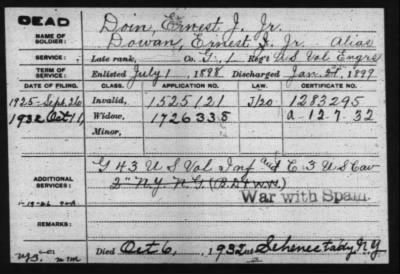 DEAD
Doin, Ernest J. Jr.
NAME OF SOLDIER: Dowan, Ernest J. Jr. Alias
SERVICE: Late rank, Co. G, 1 Reg't U S Vol Engrs
TERM OF SERVICE: Enlisted July 1 1898 Discharged Jan. 1899.
DATE OF FILING. CLASS. APPLICATION NO. LAW. CERTIFICATE NO.
1925-Sept. 26 Invalid, 1525121 J/20 1283295
1932 Oct 11, Widow, 1726335 a-12-7-32
Minor,
ADDITIONAL SERVICES: G 43 U S Vol Inf and C 3 U S Cav
2" N.Y. N.G.
War with Spain.
REMARKS:
Died Oct 6, 1932 at Schenectady, N.Y.